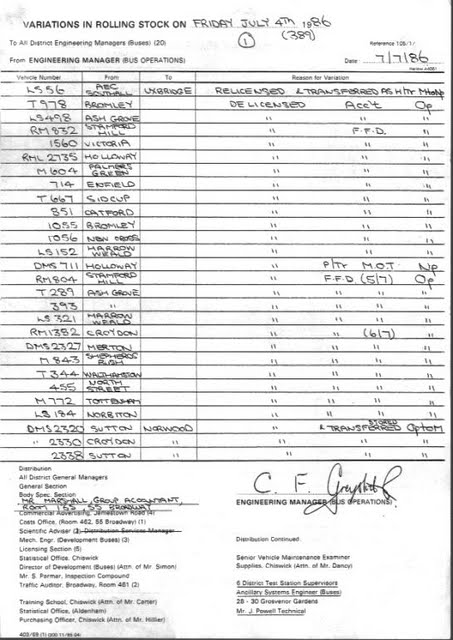 VARIATIONS IN ROLLING STOCK ON FRIDAY JULY 4TH 1986
① (389)
To All District Engineering Managers (Buses) (20)
Reference 105/1/
From ENGINEERING MANAGER (BUS OPERATIONS)
Date 7/7/86
Vehicle Number From To Reason for Variation
LS56 AEC SOUTHALL UXBRIDGE RELICENSED & TRANSFERRED AS H/Tr
T978 BROMLEY DELICENSED Acc't Op
LS498 ASH GROVE " " "
RM832 STAMFORD HILL " F.F.D. "
1560 VICTORIA " " "
RML2735 HOLLOWAY " " "
M604 PALMERS GREEN " " "
714 ENFIELD " " "
T667 SIDCUP " " "
851 CATFORD " " "
1055 BROMLEY " " "
1056 NEW CROSS " " "
LS152 HARROW WEALD " " "
DMS711 HOLLOWAY " P/Tr M.O.T. Np
RM804 STAMFORD HILL " F.F.D. (5/7) Op
T289 ASH GROVE " " " "
393 " " " " "
LS321 HARROW WEALD " " " "
RM1382 CROYDON " " (6/7) "
DMS2327 MERTON " " " "
M843 SHEPHERDS BUSH " " " "
T344 WALTHAMSTOW " " " "
455 NORTH STREET " " " "
M772 TOTTENHAM " " " "
LS184 NORBITON " " " "
DMS2320 SUTTON NORWOOD " & TRANSFERRED STORED Op to M
" 2330 CROYDON " " " " "
2338 SUTTON " " " " "
Distribution
All District General Managers
General Section
Body Spec. Section
MR MARSHALL, GROUP ACCOUNTANT,
ROOM 155, 55 BROADWAY
Commercial Advertising, Jamestown Road (4)
Costs Office, (Room 462, 55 Broadway) (1)
Scientific Adviser (2) Distribution Services Manager
Mech. Engr. (Development Buses) (3)
Licensing Section (5)
Statistical Office, Chiswick
Director of Development (Buses) (Attn. of Mr. Simon)
Mr. S. Parmar, Inspection Compound
Traffic Auditor, Broadway, Room 461 (2)
Training School, Chiswick (Attn. of Mr. Carter)
Statistical Office, (Aldenham)
Purchasing Officer, Chiswick (Attn. of Mr. Hillier)
C. F.
ENGINEERING MANAGER (BUS OPERATIONS)
Distribution Continued
Senior Vehicle Maintenance Examiner
Supplies, Chiswick (Attn. of Mr. Dancy)
6 District Test Station Supervisors
Ancillary Systems Engineer (Buses)
28 - 30 Grosvenor Gardens
Mr. J. Powell Technical